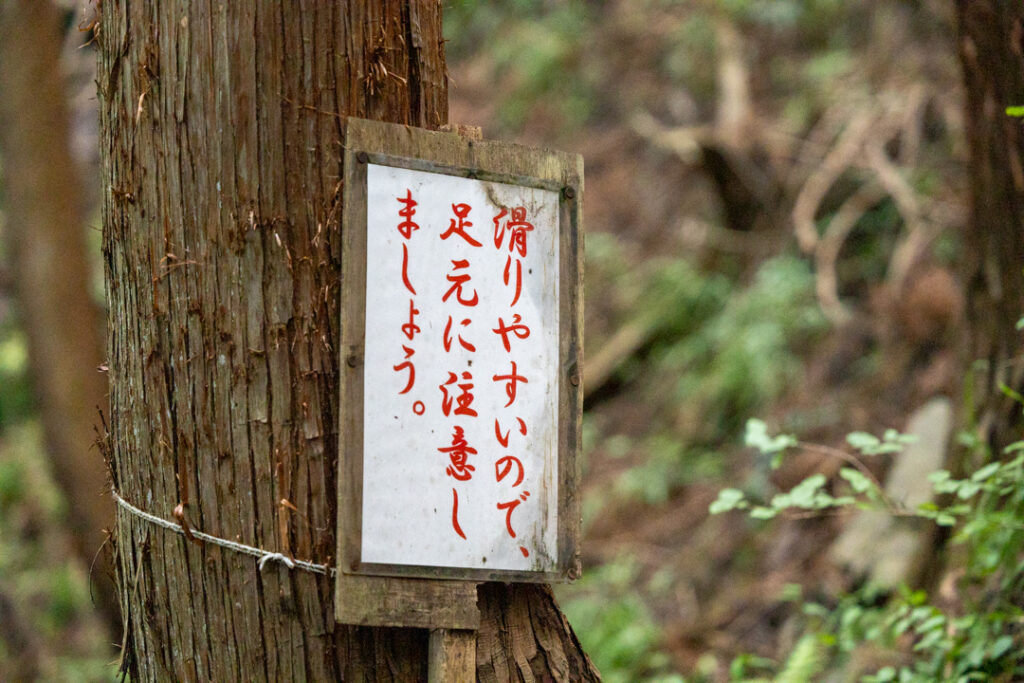 滑りやすいので、
足元に注意し
ましょう。